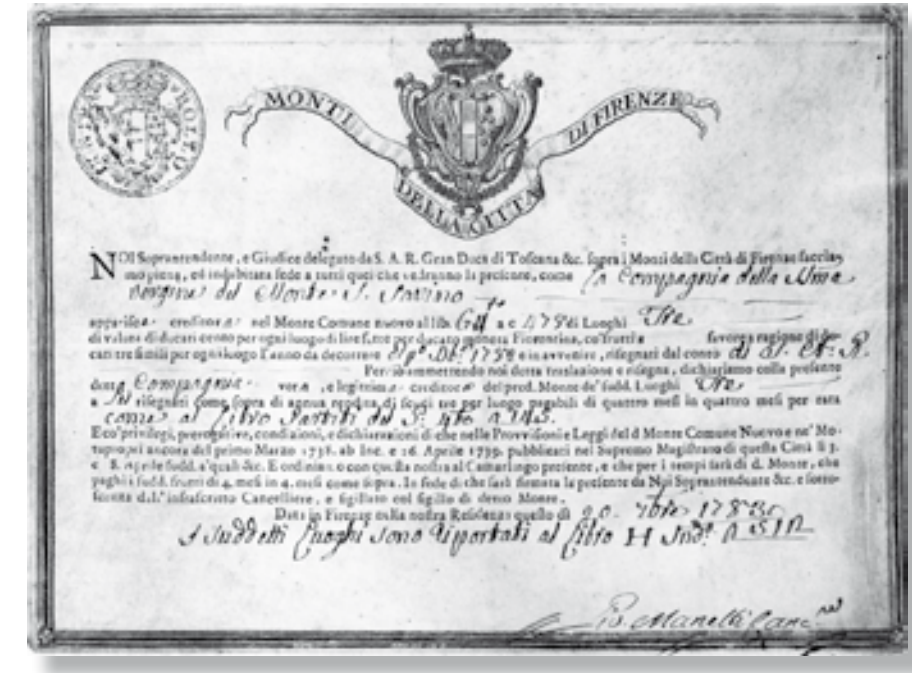 MONTI DELLA CITTA DI FIRENZE
NOI Soprantendente, e Giudice delegato da S. A. R. Gran Duca di Toscana &c. sopra i Monti della Città di Firenze faccia-
mo piena, ed indubitata fede a tutti quei che vedranno la presente, come la Compagnia della
Vergine del Monte S. Savino
apparisce creditora nel Monte Comune nuovo al lib. a c 479 di Luoghi Tre
di valuta di ducati cento per ogni luogo di lire sette per ducato moneta Fiorentina, co' frutti a favore a ragione di du-
cati tre simili per ogni luogo l'anno da decorrere e in avvenire, risegnati dal conto di
Perciò ammettendo noi detta traslazione e risegna, dichiariamo colla presente
detta Compagnia vera, e legittima creditora del pred. Monte de' sudd. Luoghi Tre
risegnati come sopra di annua rendita di scudi tre per luogo pagabili di quattro mesi in quattro mesi per rata
come al Libro Partiti
E co' privilegi, prerogative, condizioni, e dichiarazioni di che nelle Provvisioni e Leggi del d Monte Comune Nuovo e ne' Mo-
tupropri ancora del primo Marzo 1738. ab Inc. e 16. Aprile 1739. pubblicati nel Supremo Magistrato di questa Città li 3.
e 8. Aprile sudd. a' quali &c. E ordiniamo con questa nostra al Camarlingo presente, e che per i tempi sarà di d. Monte, che
paghi i sudd. frutti di 4. mesi in 4. mesi come sopra. In fede di che sarà firmata la presente da Noi Soprantendente &c. e sotto-
scritta d.l' infrascritto Cancelliere, e sigillato col sigillo di detto Monte.
Data in Firenze dalla nostra Residenza questo dì 20.
I Suddetti Luoghi sono riportati al Libro H
Manelli Canc.re